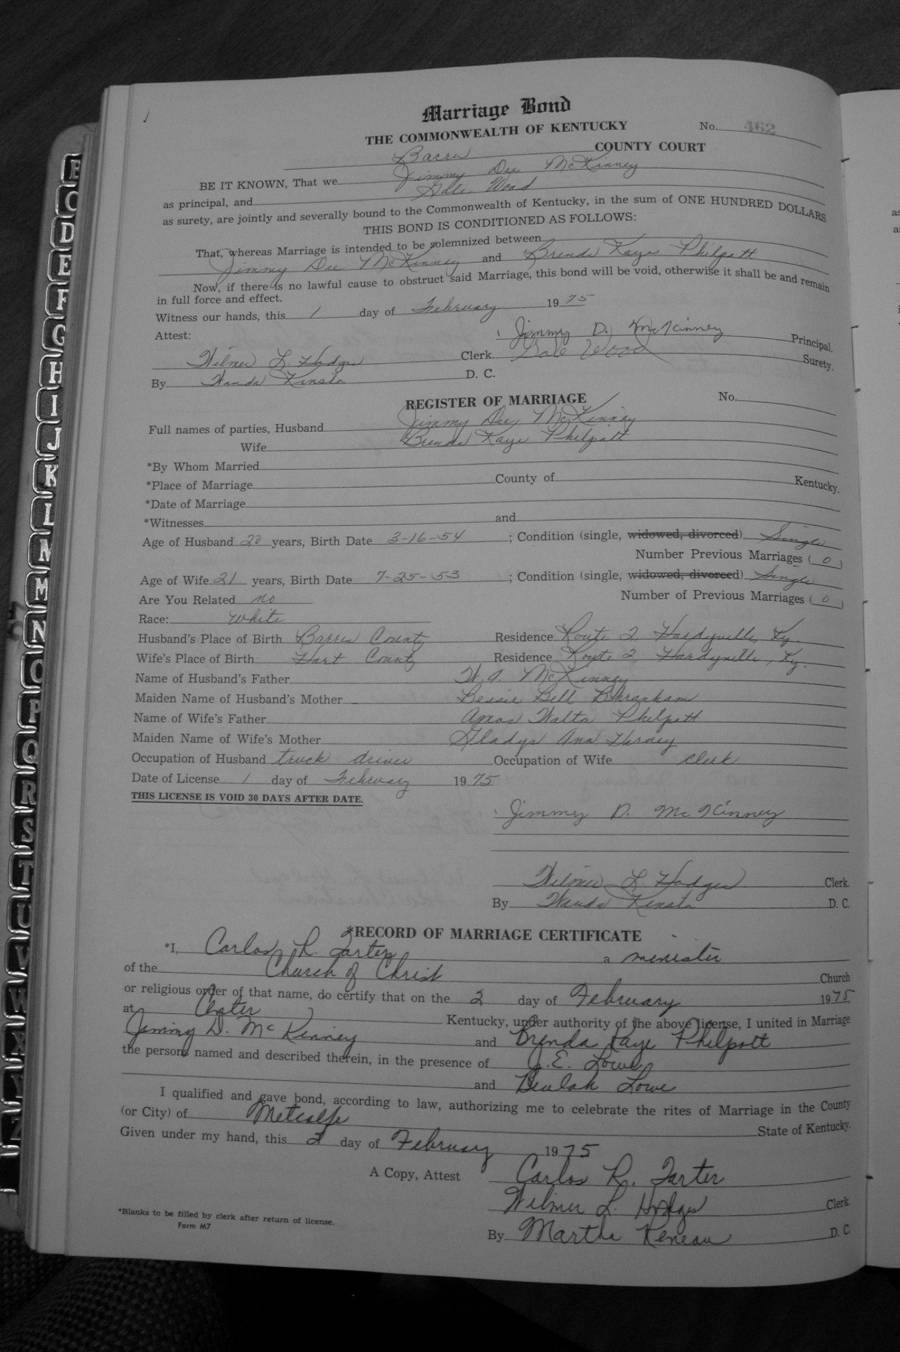 Marriage Bond
THE COMMONWEALTH OF KENTUCKY No. 462
Barren COUNTY COURT
BE IT KNOWN, That we Jimmy Dee McKinney
as principal, and Gale Wood
as surety, are jointly and severally bound to the Commonwealth of Kentucky, in the sum of ONE HUNDRED DOLLARS
THIS BOND IS CONDITIONED AS FOLLOWS:
That, whereas Marriage is intended to be solemnized between
Jimmy Dee McKinney and Brenda Kaye Philpott
Now, if there is no lawful cause to obstruct said Marriage, this bond will be void, otherwise it shall be and remain
in full force and effect.
Witness our hands, this 1 day of February 1975
Attest: Jimmy D. McKinney Principal.
Wilmer L. Hodges Clerk. Gale Wood Surety.
By Wanda D. C.
REGISTER OF MARRIAGE No.
Full names of parties, Husband Jimmy Dee McKinney
Wife Brenda Kaye Philpott
*By Whom Married
*Place of Marriage County of Kentucky.
*Date of Marriage
*Witnesses and
Age of Husband 20 years, Birth Date 3-16-54 ; Condition (single, widowed, divorced) Single
Number Previous Marriages (0)
Age of Wife 21 years, Birth Date 7-25-53 ; Condition (single, widowed, divorced) Single
Are You Related no Number of Previous Marriages (0)
Race: White
Husband's Place of Birth Barren County Residence Route 2 Hardyville, Ky.
Wife's Place of Birth Hart County Residence Route 2 Hardyville, Ky.
Name of Husband's Father McKinney
Maiden Name of Husband's Mother Bessie Bell
Name of Wife's Father Amos Walta Philpott
Maiden Name of Wife's Mother Gladys Ann
Occupation of Husband truck driver Occupation of Wife clerk
Date of License 1 day of February 1975
THIS LICENSE IS VOID 30 DAYS AFTER DATE.
Jimmy D. McKinney
Wilmer L. Hodges Clerk
By Wanda D. C.
*RECORD OF MARRIAGE CERTIFICATE
*I, Carlos R. Tarter a minister
of the Church of Christ Church
or religious order of that name, do certify that on the 2 day of February 1975
at Center Kentucky, under authority of the above license, I united in Marriage
Jimmy D. McKinney and Brenda Kaye Philpott
the persons named and described therein, in the presence of J.E. Lowe
and Beulah Lowe
I qualified and gave bond, according to law, authorizing me to celebrate the rites of Marriage in the County
(or City) of Metcalfe State of Kentucky.
Given under my hand, this 2 day of February 1975
A Copy, Attest Carlos R. Tarter
Wilmer L. Hodges Clerk
By Martha D. C.
*Blanks to be filled by clerk after return of license.
Form M7
B
C
D
E
F
G
H
I
J
K
L
M
N
O
P
Q
R
S
T
U
V
W
X
Y
Z